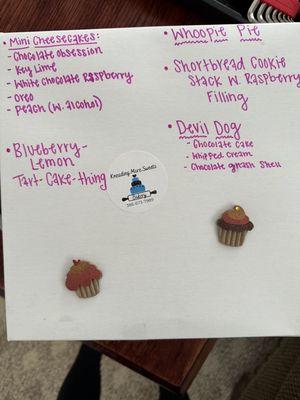 • Mini Cheesecakes:
- Chocolate Obsession
- Key Lime
- White Chocolate Raspberry
- Oreo
- Peach (w. alcohol)
• Blueberry-
Lemon
Tart-Cake-thing
• Whoopie Pie
• Shortbread Cookie
Stack w. Raspberry
Filling
• Devil Dog
- Chocolate Cake
- Whipped Cream
- Chocolate
Shell
Kneading More Sweets
Bakery